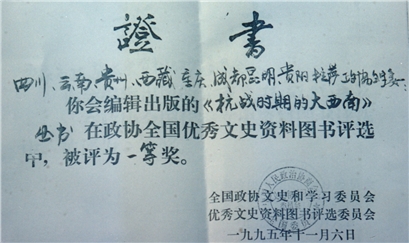 證 書
四川、云南、贵州、西藏、重庆、成都、昆明、贵阳、拉萨政协
你会编辑出版的《抗战时期的大西南》
丛书 在政协全国优秀文史资料图书评选
中，被评为一等奖。
全国政协文史和学习委员会
优秀文史资料图书评选委员会
一九九五年十一月六日